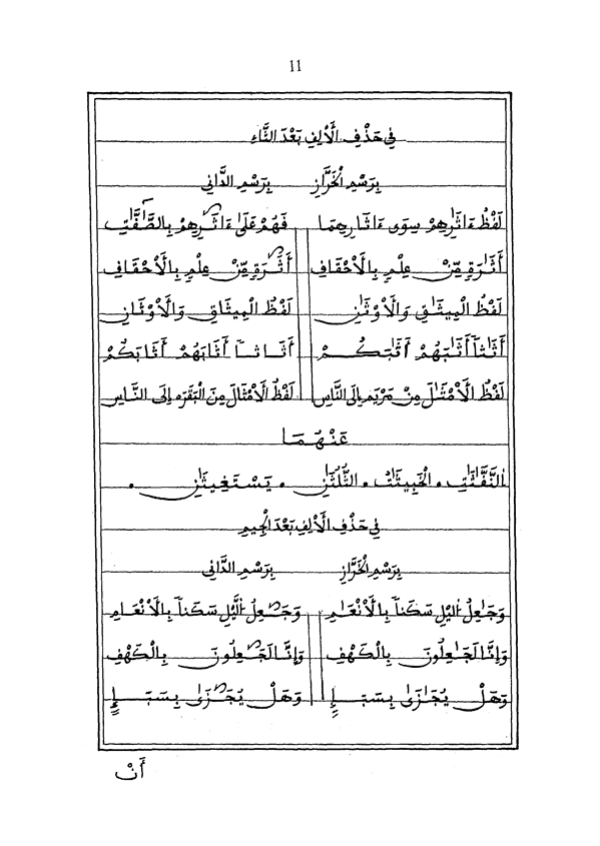 11
في حَذْفِ الْأَلِفِ بَعْدَ الثَّاءِ
بِرَسْمِ الْخَرَّازِ بِرَسْمِ الدَّانِي
لَفْظُ ءَاثَٰرِهِمْ سِوَى ءَاثَارِهِمَا فَهُمْ عَلَىٰ ءَاثَٰرِهِمْ بِالصَّٰفَّٰتِ
أَثَٰرَةٍ مِّنْ عِلْمٍ بِالْأَحْقَافِ أَثَٰرَةٍ مِّنْ عِلْمٍ بِالْأَحْقَافِ
لَفْظُ الْمِيثَٰقِ وَالْأَوْثَٰنِ لَفْظُ الْمِيثَاقِ وَالْأَوْثَانِ
أَثَٰثاً أَثَٰبَهُمْ أَثَٰبَكُمْ أَثَاثاً أَثَابَهُمْ أَثَابَكُمْ
لَفْظُ الْأَمْثَٰلَ مِنْ مَرْيَمِ إِلَى النَّاسِ لَفْظُ الْأَمْثَالَ مِنَ الْبَقَرَه إِلَى النَّاسِ
عَنْهُمَا
النَّفَّٰثَٰتِ . الْخَبِيثَٰتُ . الثُّلُثَٰنِ . يَسْتَغِيثَٰنِ .
في حَذْفِ الْأَلِفِ بَعْدَ الْجِيمِ
بِرَسْمِ الْخَرَّازِ بِرَسْمِ الدَّانِي
وَجَٰعِلُ الَّيْلِ سَكَناً بِالْأَنْعَٰمِ وَجَٰعِلُ الَّيْلِ سَكَناً بِالْأَنْعَامِ
وَإِنَّا لَجَٰعِلُونَ بِالْكَهْفِ وَإِنَّا لَجَٰعِلُونَ بِالْكَهْفِ
وَهَلْ يُجَٰزَىٰ بِسَبَإٍ وَهَلْ يُجَٰزَىٰ بِسَبَإٍ
أَنْ